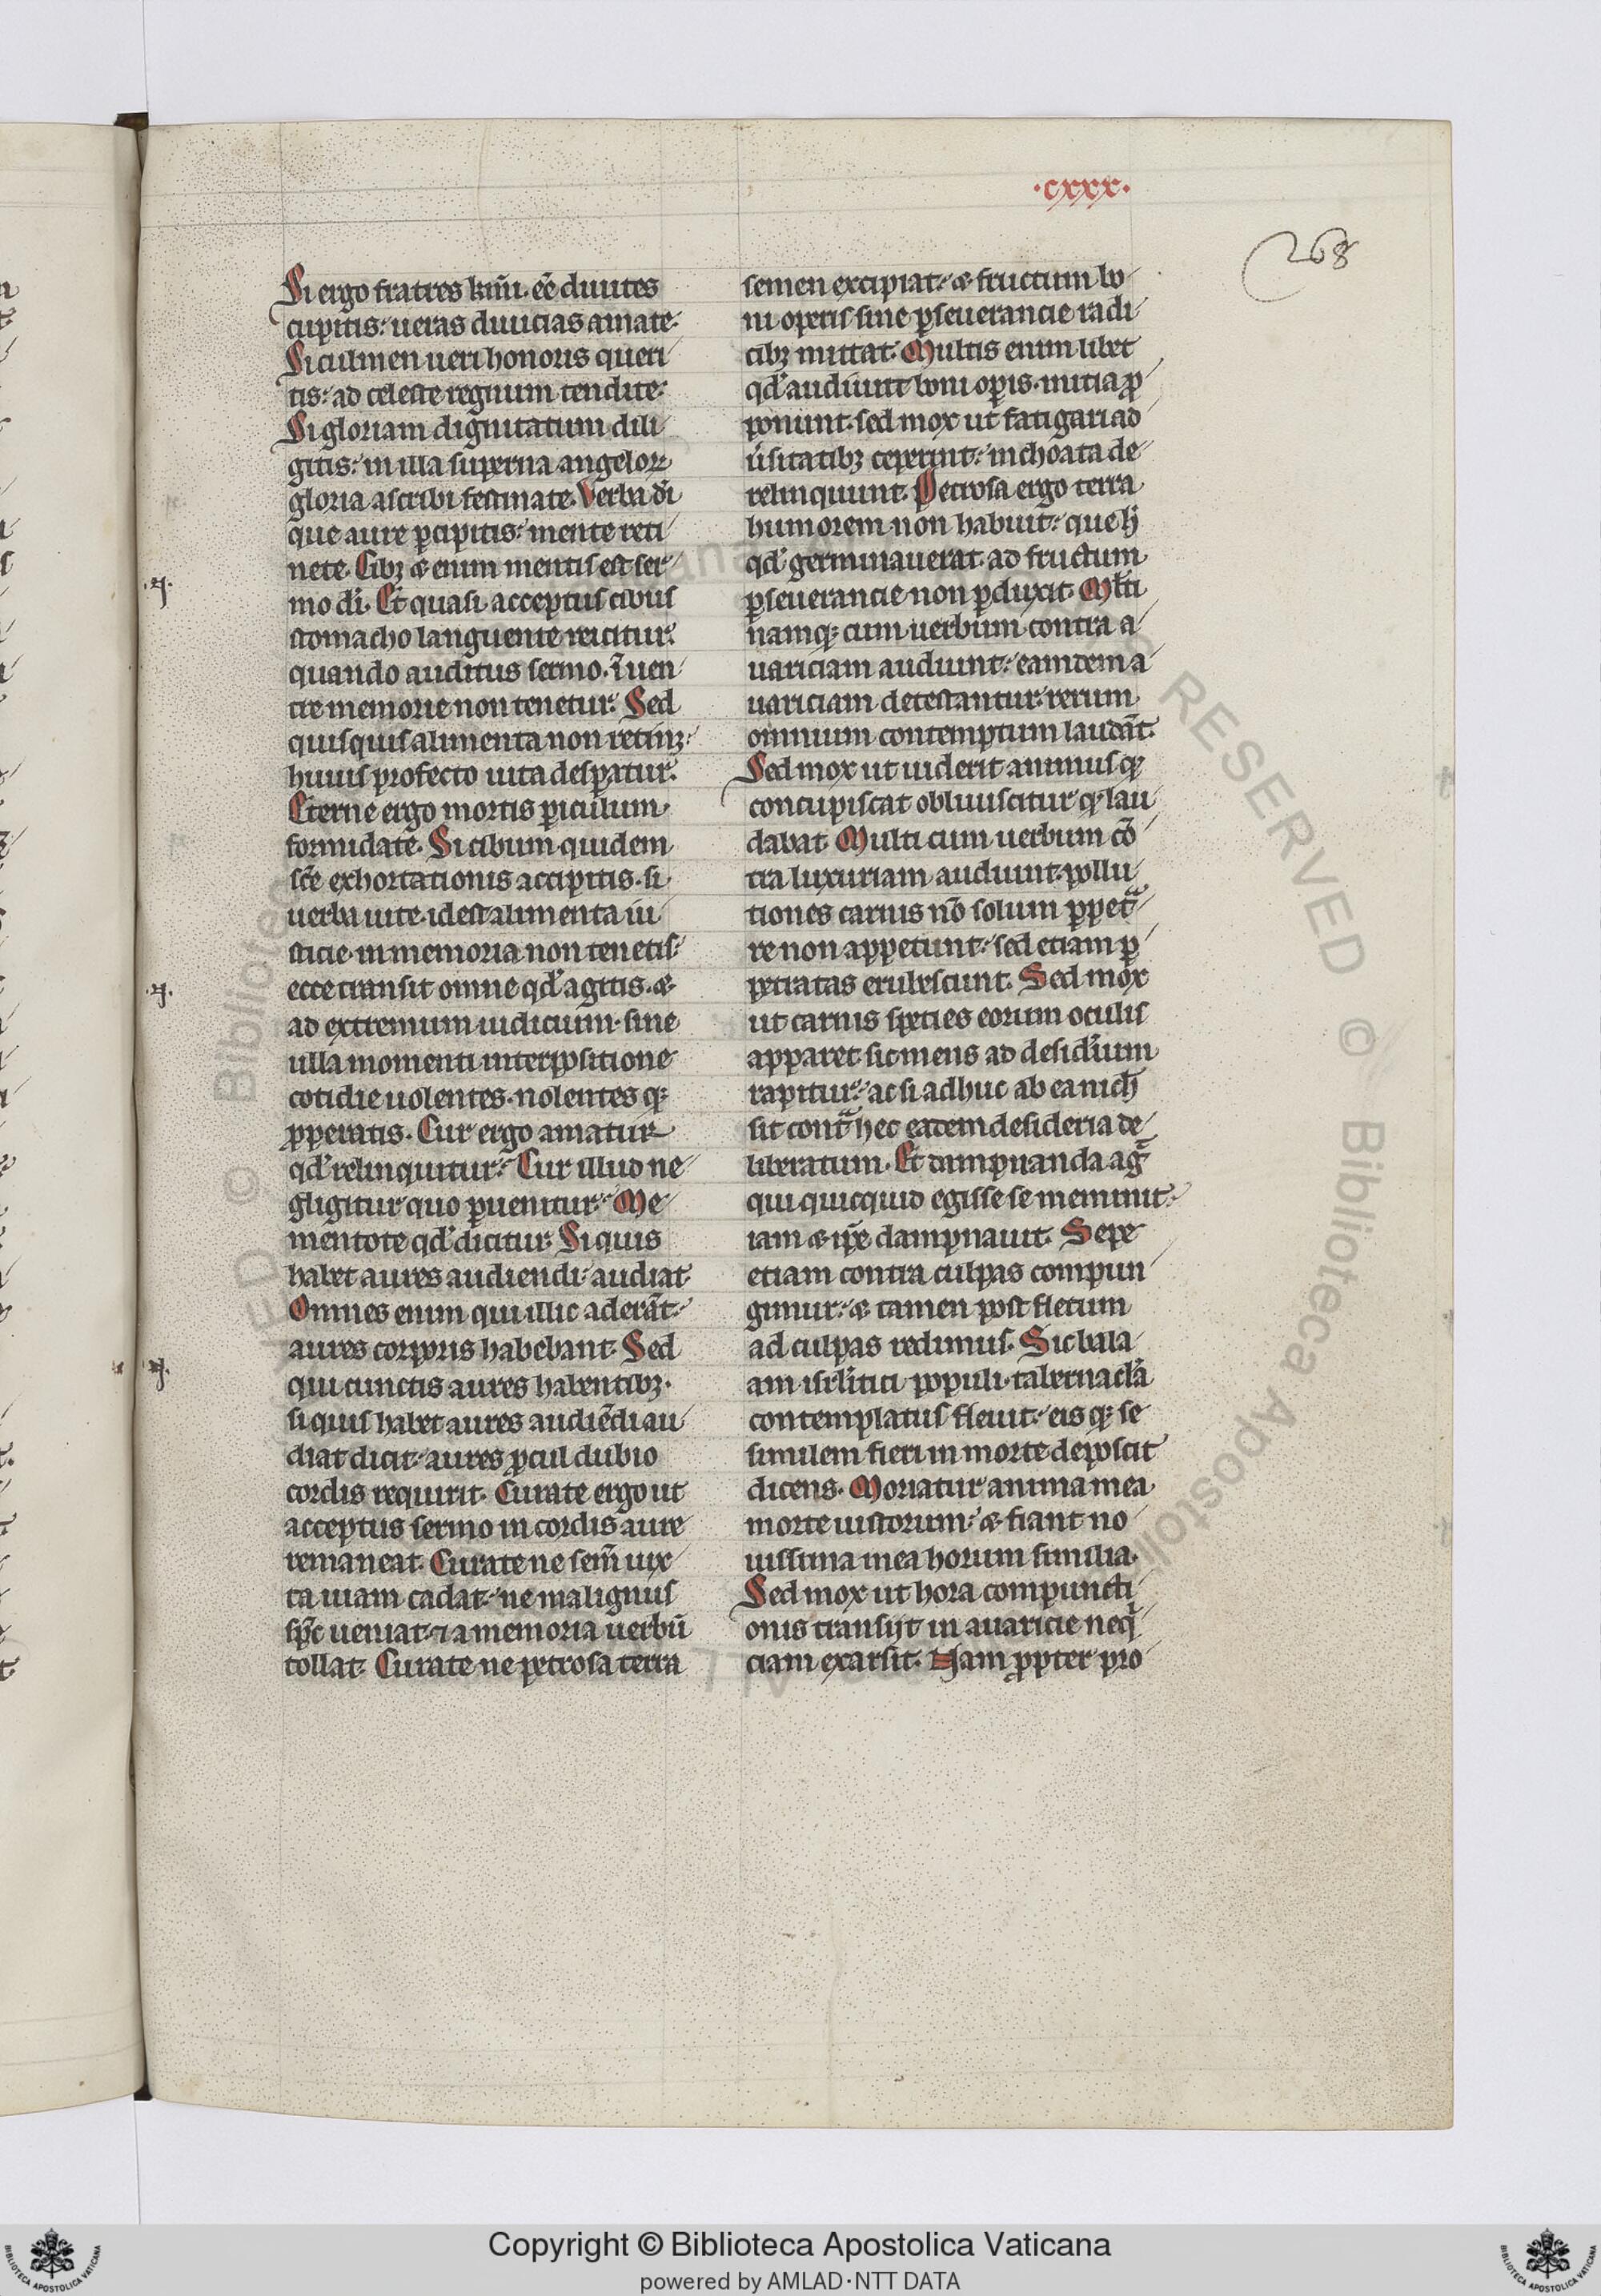 ·cxxx·
268
Si ergo fratres km̄i. eē diuites
cupitis: ueras diuicias amate.
Si culmen ueri honoris queri
tis: ad celeste regnum tendite.
Si gloriam dignitatum dili
gitis: in illa superna angeloꝝ
gloria ascribi festinate. Verba dī
que aure ꝑcipitis: mente reti
nete. Cibꝫ & enim mentis est ser
mo dī. Et quasi acceptus cibus
stomacho languente reicitur.
quando auditus sermo. ī uen
tre memorie non tenetur. Sed
quisquis alimenta non retinꝫ:
huius profecto uita desꝑatur.
Eterne ergo mortis ꝑiculum
formidate. Si cibum quidem
scē exhortationis accipitis. si
uerba uite. id est alimenta iu
sticie. in memoria non tenetis.
ecce transit omne qd̓ agitis. &
ad extremum iudicium. sine
ulla momenti interpositione
cotidie uolentes. nolentes qꝫ
ꝓperatis. Cur ergo amatur
qd̓ relinquitur. Cur illud ne
gligitur quo ꝑuenitur. Me
mentote qd̓ dicitur. Si quis
habet aures audiendi: audiat.
Omnes enim qui illic aderāt.
aures corporis habebant. Sed
qui cunctis aures habentibꝫ.
si quis habet aures audiēdi au
diat dicit: aures ꝓcul dubio
cordis requirit. Curate ergo ut
acceptus sermo in cordis aure
remaneat. Curate ne sem̄ iux
ta uiam cadat: ne malignus
sp̄c ueniat ⁊ a memoria uerbū
tollat. Curate ne petrosa terra
semen excipiat: & fructum bo
ni operis sine ꝑseuerancie radi
cibꝫ mittat. Multis enim libet
qd̓ audiunt boni oꝑis. initia ꝓ
ponunt. sed mox ut fatigari ad
uersitatibꝫ ceperint: inchoata de
relinquunt. Petrosa ergo terra
humorem non habuit: que h̓
qd̓ germinauerat. ad fructum
ꝑseuerancie non ꝑduxit. Ml̓ti
namqꝫ cum uerbum contra a
uariciam audiunt: eamdem a
uariciam detestantur. rerum
omnium contemptum laudāt.
Sed mox ut uiderit animus qꝫ
concupiscat obliuiscitur qꝫ lau
dabat. Multi cum uerbum cō
tra luxuriam audiunt. pollu
tiones carnis nō solum ꝑpet̄
re non appetunt: sed etiam ꝑ
petratas erubescunt. Sed mox
ut carnis species eorum oculis
apparet sic mens ad desid̓ium
rapitur: ac si adhuc ab ea nich̄
sit cont̄ hec eadem desideria de
liberatum. Et dampnanda aḡ
qui quicquid egisse se meminit.
iam & ip̄e dampnauit. Sepe
etiam contra culpas compun
gimur: & tamen post fletum
ad culpas redimus. Sic bala
am isrl̓itici populi tabernacl̓a
contemplatus fleuit: eis qꝫ se
similem fieri in morte deposcit
dicens. Moriatur anima mea
morte iustorum: & fiant no
uissima mea horum similia.
Sed mox ut hora compuncti
onis transijt in auaricie neq̓
ciam exarsit. Nam ꝓpter pro
Copyright © Biblioteca Apostolica Vaticana
powered by AMLAD·NTT DATA